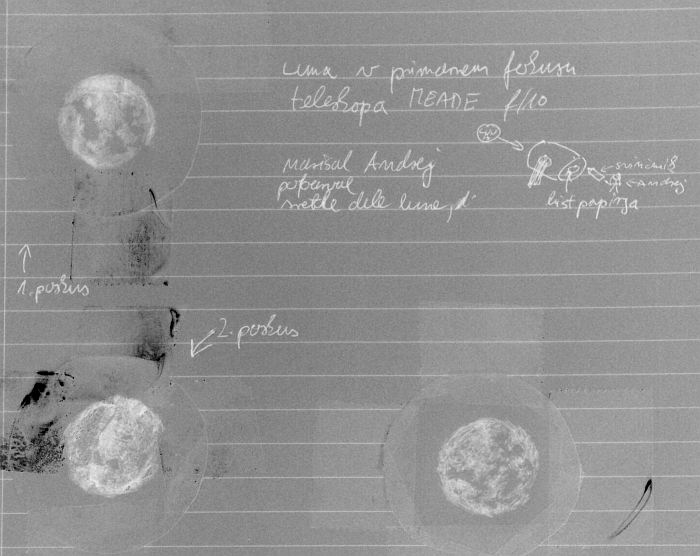 Luna v primarnem fokusu
teleskopa MEADE f/10
Narisal Andrej
pobarval
svetle dele lune,
svinčnik
Andrej
list papirja
1. poskus
2. poskus